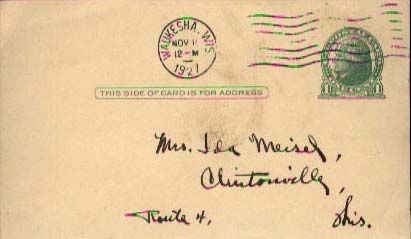 WAUKESHA, WIS
NOV 11
12-M
1921
THIS SIDE OF CARD IS FOR ADDRESS
1 1
Mrs. Ida Meisel,
Clintonville,
Route 4, Wis.